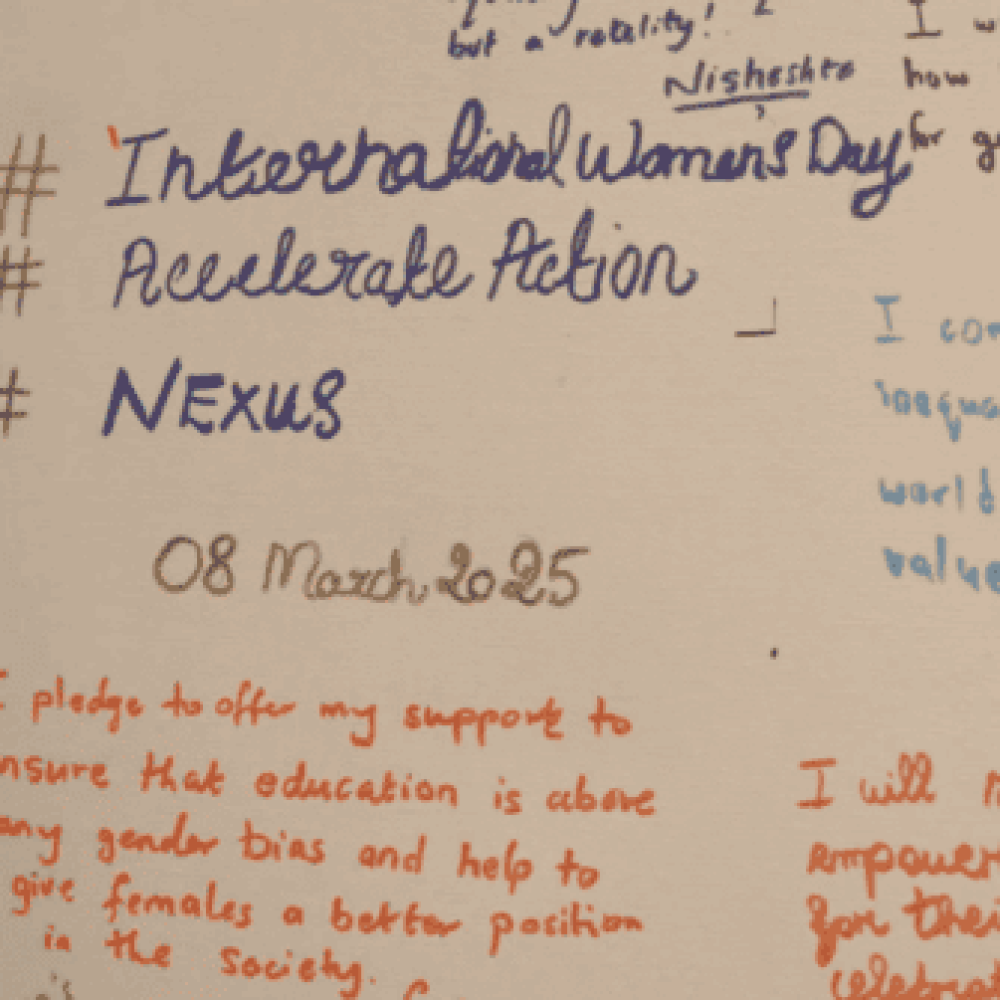 but a reality!
Nisheshta
I
how
# International Women's Day
for
# Accelerate Action
# NEXUS
08 March, 2025
I
world
value
I pledge to offer my support to
ensure that education is above
any gender bias and help to
give females a better position
in the society.
I will
empower
for their
celebrat